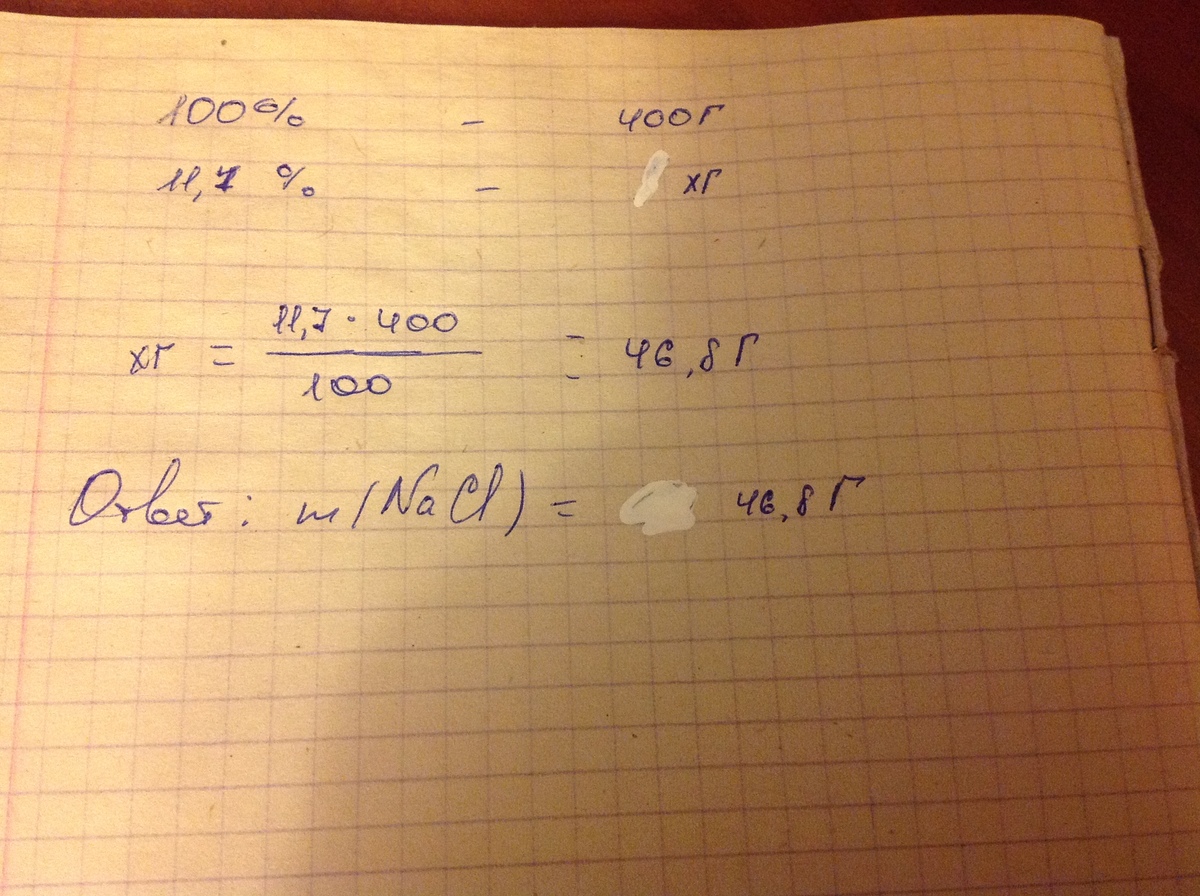 100% - 400г
11,7 % - хг
хг = 11,7 · 400 / 100 = 46,8 г
Ответ: m(NaCl) = 46,8 г